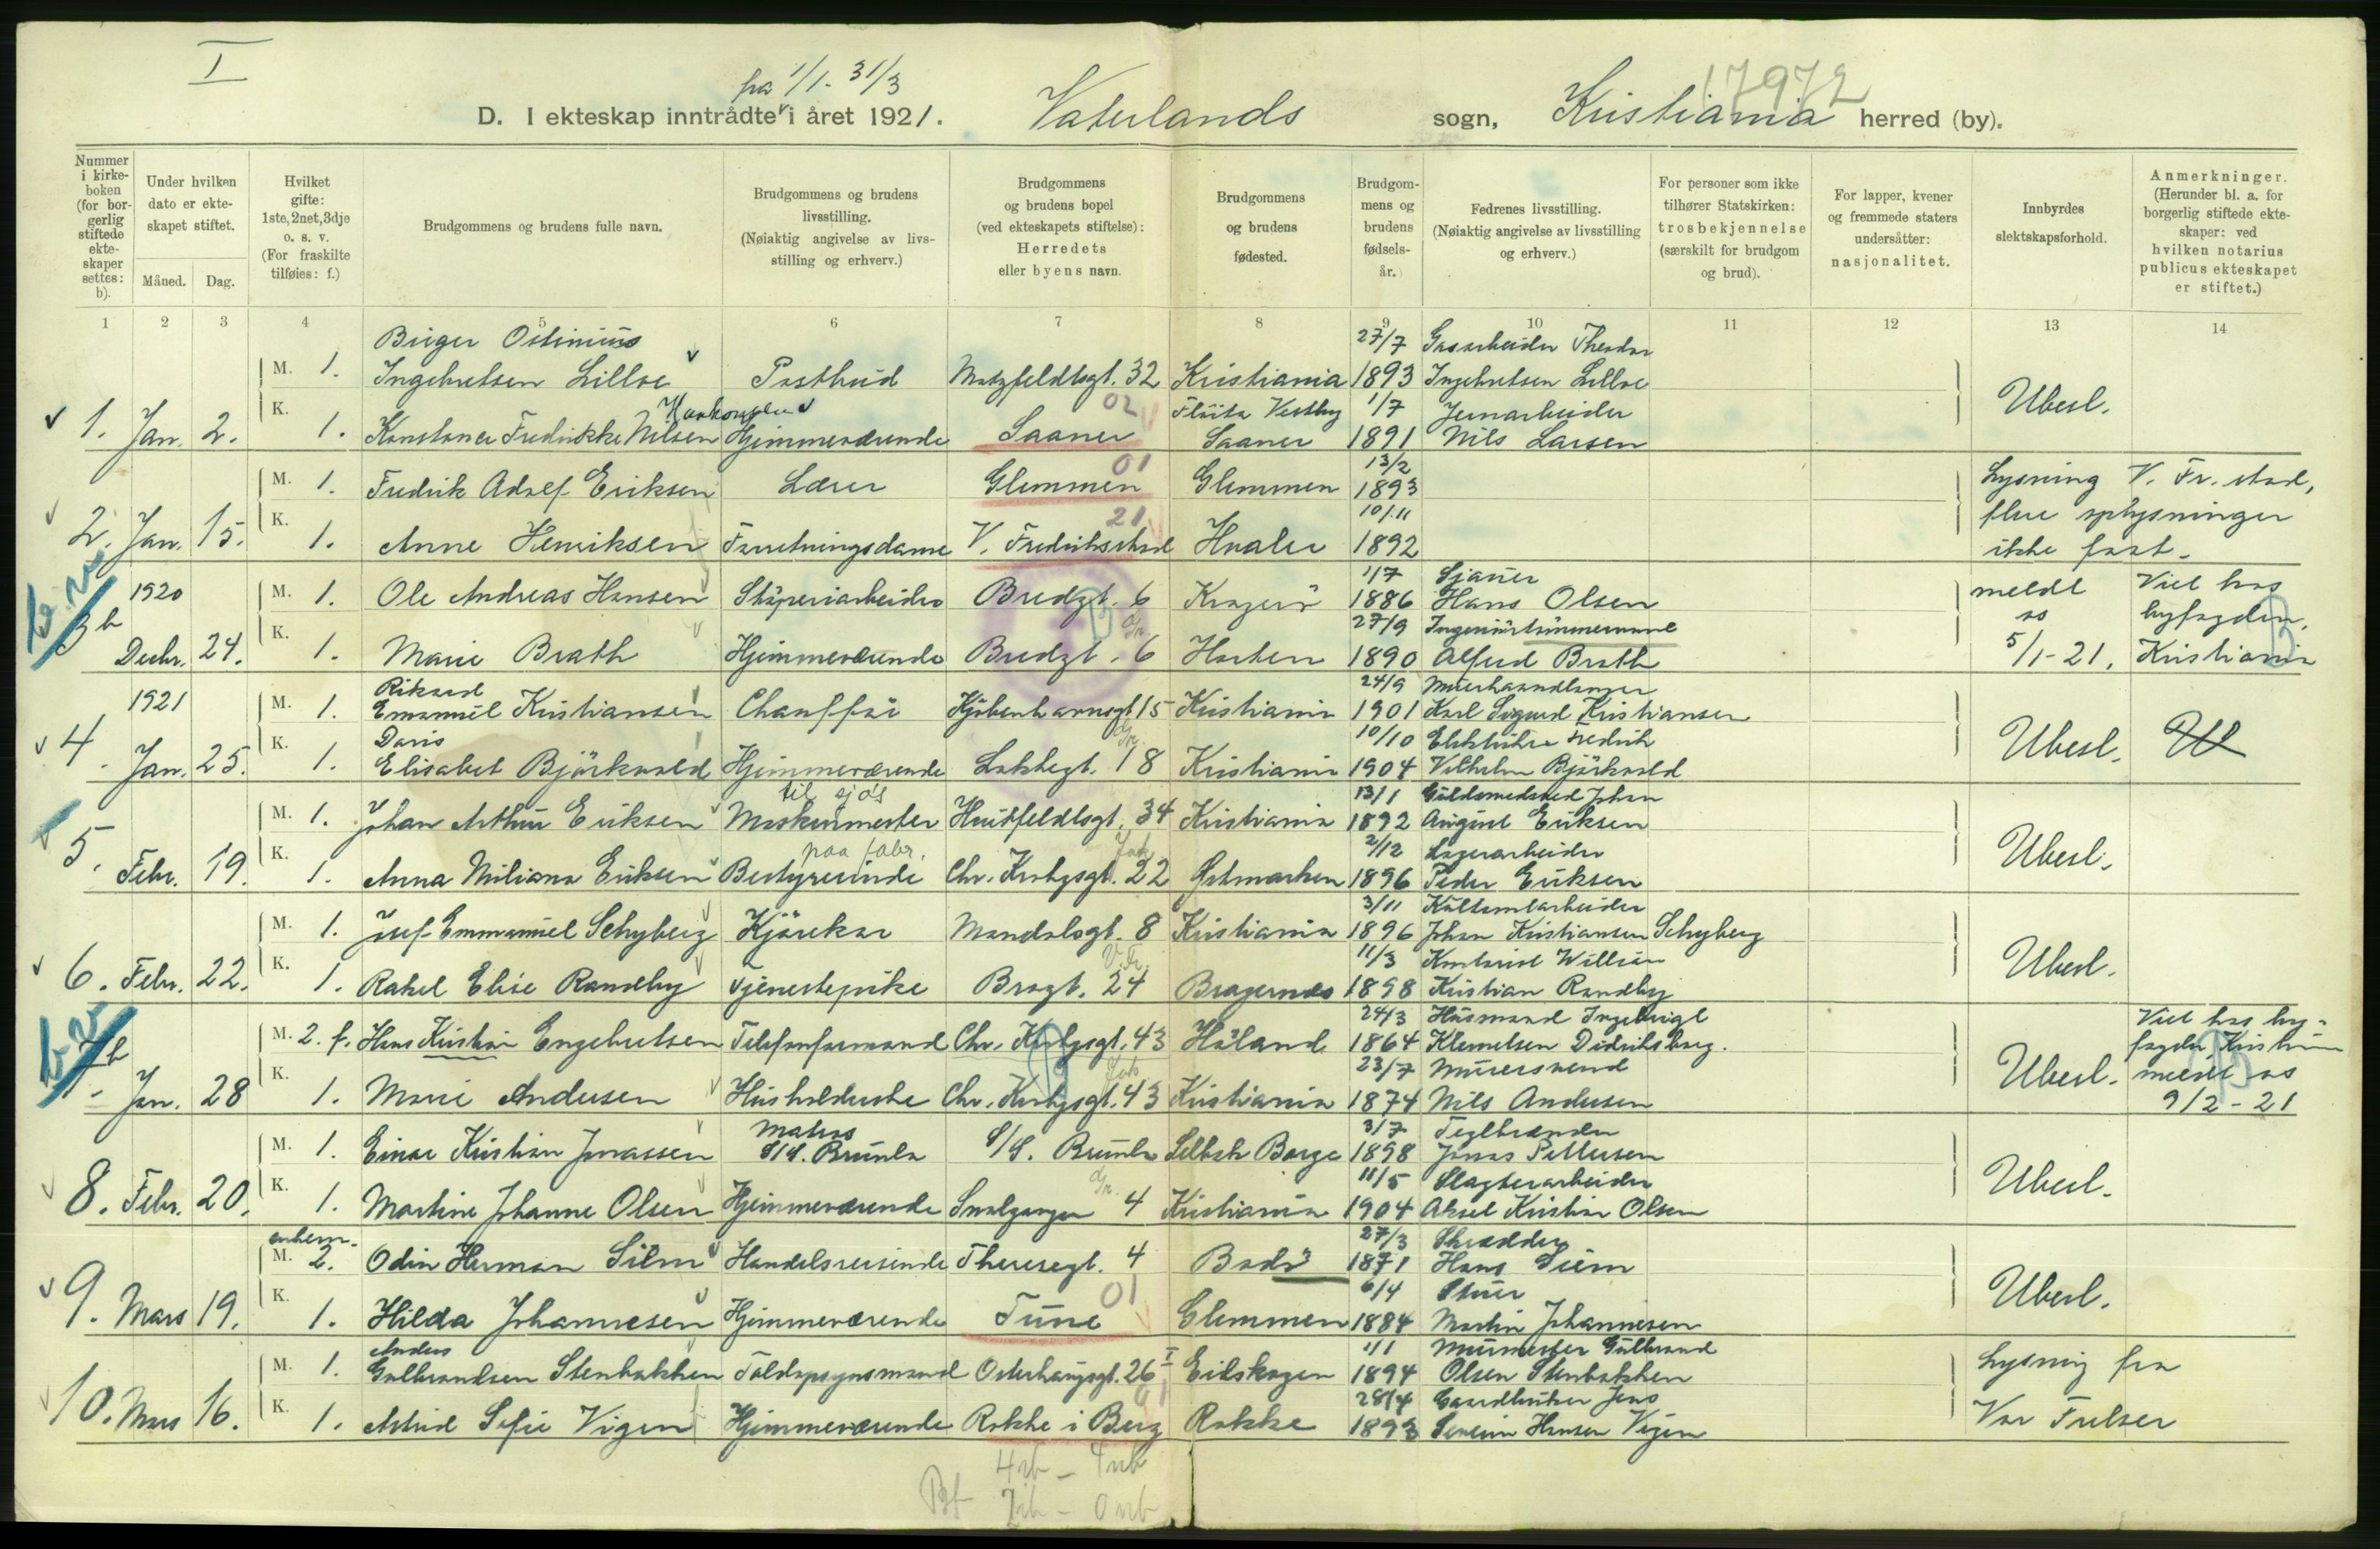 I
fra 1/1 - 31/3
17972
D. I ekteskap inntrådte i året 1921. Vaterlands sogn, Kristiania herred (by).
Nummer i kirkeboken (for borgerlig stiftede ekteskaper settes: b).
Under hvilken dato er ekteskapet stiftet.
Måned. Dag.
Hvilket gifte: 1ste, 2net, 3dje o. s. v. (For fraskilte tilføies: f.)
Brudgommens og brudens fulle navn.
Brudgommens og brudens livsstilling. (Nøiaktig angivelse av livsstilling og erhverv.)
Brudgommens og brudens bopel (ved ekteskapets stiftelse): Herredets eller byens navn.
Brudgommens og brudens fødested.
Brudgommens og brudens fødselsår.
Fedrenes livsstilling. (Nøiaktig angivelse av livsstilling og erhverv.)
For personer som ikke tilhører Statskirken: trosbekjennelse (særskilt for brudgom og brud).
For lapper, kvener og fremmede staters undersåtter: nasjonalitet.
Innbyrdes slektskapsforhold.
Anmerkninger. (Herunder bl. a. for borgerlig stiftede ekteskaper: ved hvilken notarius publicus ekteskapet er stiftet.)
1 2 3 4 5 6 7 8 9 10 11 12 13 14
Birger Ostinius 27/7 Gasarbeider Theodor
M. 1. Ingebretsen Lilloe Postbud Motzfeldtsgt. 32 Kristiania 1893 Ingebretsen Lilloe
02 Vestby 1/7 Jernarbeider
1. Jan. 2. K. 1. Konstance Fredrikke Nilsen Hjemmeværende Saaner Saaner 1891 Nils Larsen Ubesl.
01 13/2
M. 1. Fredrik Adolf Eriksen Lærer Glemmen Glemmen 1893 Lysning V. Fr.stad,
21 10/11 flere oplysninger
2. Jan. 15. K. 1. Anne Henriksen Forretningsdame V. Fredrikstad Hvaler 1892 ikke faat.
1920 1/7 Sjauer
M. 1. Ole Andreas Hansen Støperiarbeider Bredgt. 6 Kragerö 1886 Hans Olsen meldt os Viet hos byfogden,
3b 27/9
Decbr. 24. K. 1. Marie Brath Hjemmeværende Bredgt. 6 Horten 1890 Alfred Brath 5/1-21. Kristiania
1921 Rikard 24/9 Murerhaandlanger
M. 1. Emanuel Kristiansen Chauffør Kjøbenhavnsgt 15 Kristiania 1901 Karl Sigurd Kristiansen
Doris 10/10 Fredrik
4. Jan. 25. K. 1. Elisabet Björkvold Hjemmeværende Lakkegt. 18 Kristiania 1904 Vilhelm Björkvold Ubesl.
til sjøs 13/1 Johan
M. 1. Johan Arthur Eriksen Maskinmester Huitfeldtsgt. 34 Kristiania 1892 August Eriksen
paa fabr. Jak 2/12 Lagerarbeider
5. Febr. 19. K. 1. Anna Miliana Eriksen Bestyrerinde Chr. Krohgsgt. 22 Ørkmarken 1896 Peder Eriksen Ubesl.
3/11
M. 1. Josef Emmanuel Schyberg Kjørekar Mandalsgt. 8 Kristiania 1896 Johan Kristiansen Schyberg
V. Fr. 11/3 Kontorist William
6. Febr. 22. K. 1. Rakel Elise Randby Tjenestepike Brogt. 24 Bragernes 1898 Kristian Randby Ubesl.
24/3 Husmand Ingebrigt Viet hos by-
M. 2. f. Hans Kristian Engebretsen Telefonformand Chr. Krohgsgt. 43 Høland 1864 Klemetsen Didriksberg. fogden, Kristiania
Jak 23/7 Murersvend meldt os
7b Jan. 28 K. 1. Marie Andersen Husholderske Chr. Krohgsgt. 43 Kristiania 1874 Nils Andersen Ubesl. 9/2-21
Matros 3/7 Teglbrænder
M. 1. Einar Kristian Jonassen S/S. Brumla S/S. Brumla Selbak Borge 1898 Jonas Pettersen
Gr. 11/5 Slagteriarbeider
8. Febr. 20. K. 1. Martine Johanne Olsen Hjemmeværende Smalgangen 4 Kristiania 1904 Aksel Kristian Olsen Ubesl.
enkem. 27/3 Skrædder
M. 2. Odin Herman Siem Handelsreisende Theresegt. 4 Bodö 1871 Hans Siem
01 6/4 Stuer
9. Mars 19. K. 1. Hilda Johannesen Hjemmeværende Tune Glemmen 1884 Martin Johannesen Ubesl.
Anders 1/1 Murmester Gulbrand
M. 1. Gulbrandsen Stenbakken Toldopsynsmand Osterhausgt. 26 I Eidskogen 1894 Olsen Stenbakken Lysning fra
01 28/4 Gaardbruker Jens
10. Mars 16. K. 1. Astrid Sofie Vigen Hjemmeværende Rokke i Berg Rokke 1893 Severin Hansen Vigen Vor Frelser